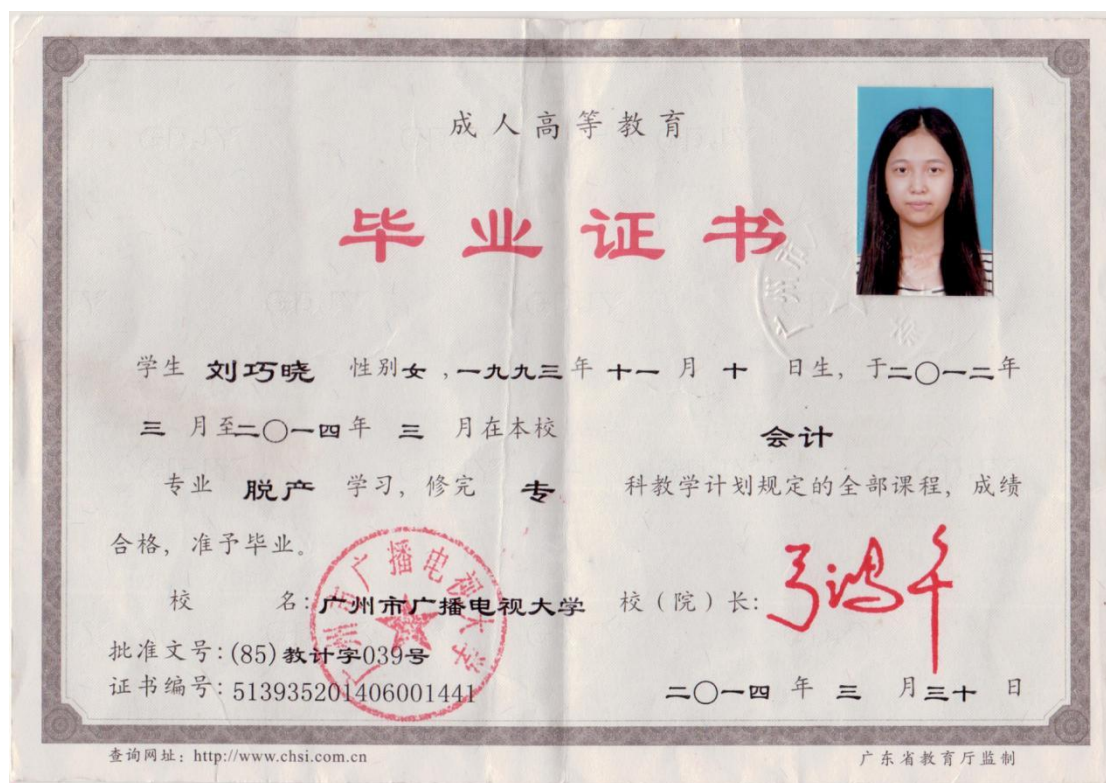 成人高等教育
毕业证书
学生 刘巧晓 性别女，一九九三年 十一 月 十 日生，于二〇一二年
三 月至二〇一四年 三 月在本校 会计
专业 脱产 学习，修完 专 科教学计划规定的全部课程，成绩
合格，准予毕业。
校 名：广州市广播电视大学 校（院）长：
批准文号：(85)教计字039号
证书编号：513935201406001441
二〇一四 年 三 月三十 日
广州市广播电视大学
查询网址：http://www.chsi.com.cn
广东省教育厅监制